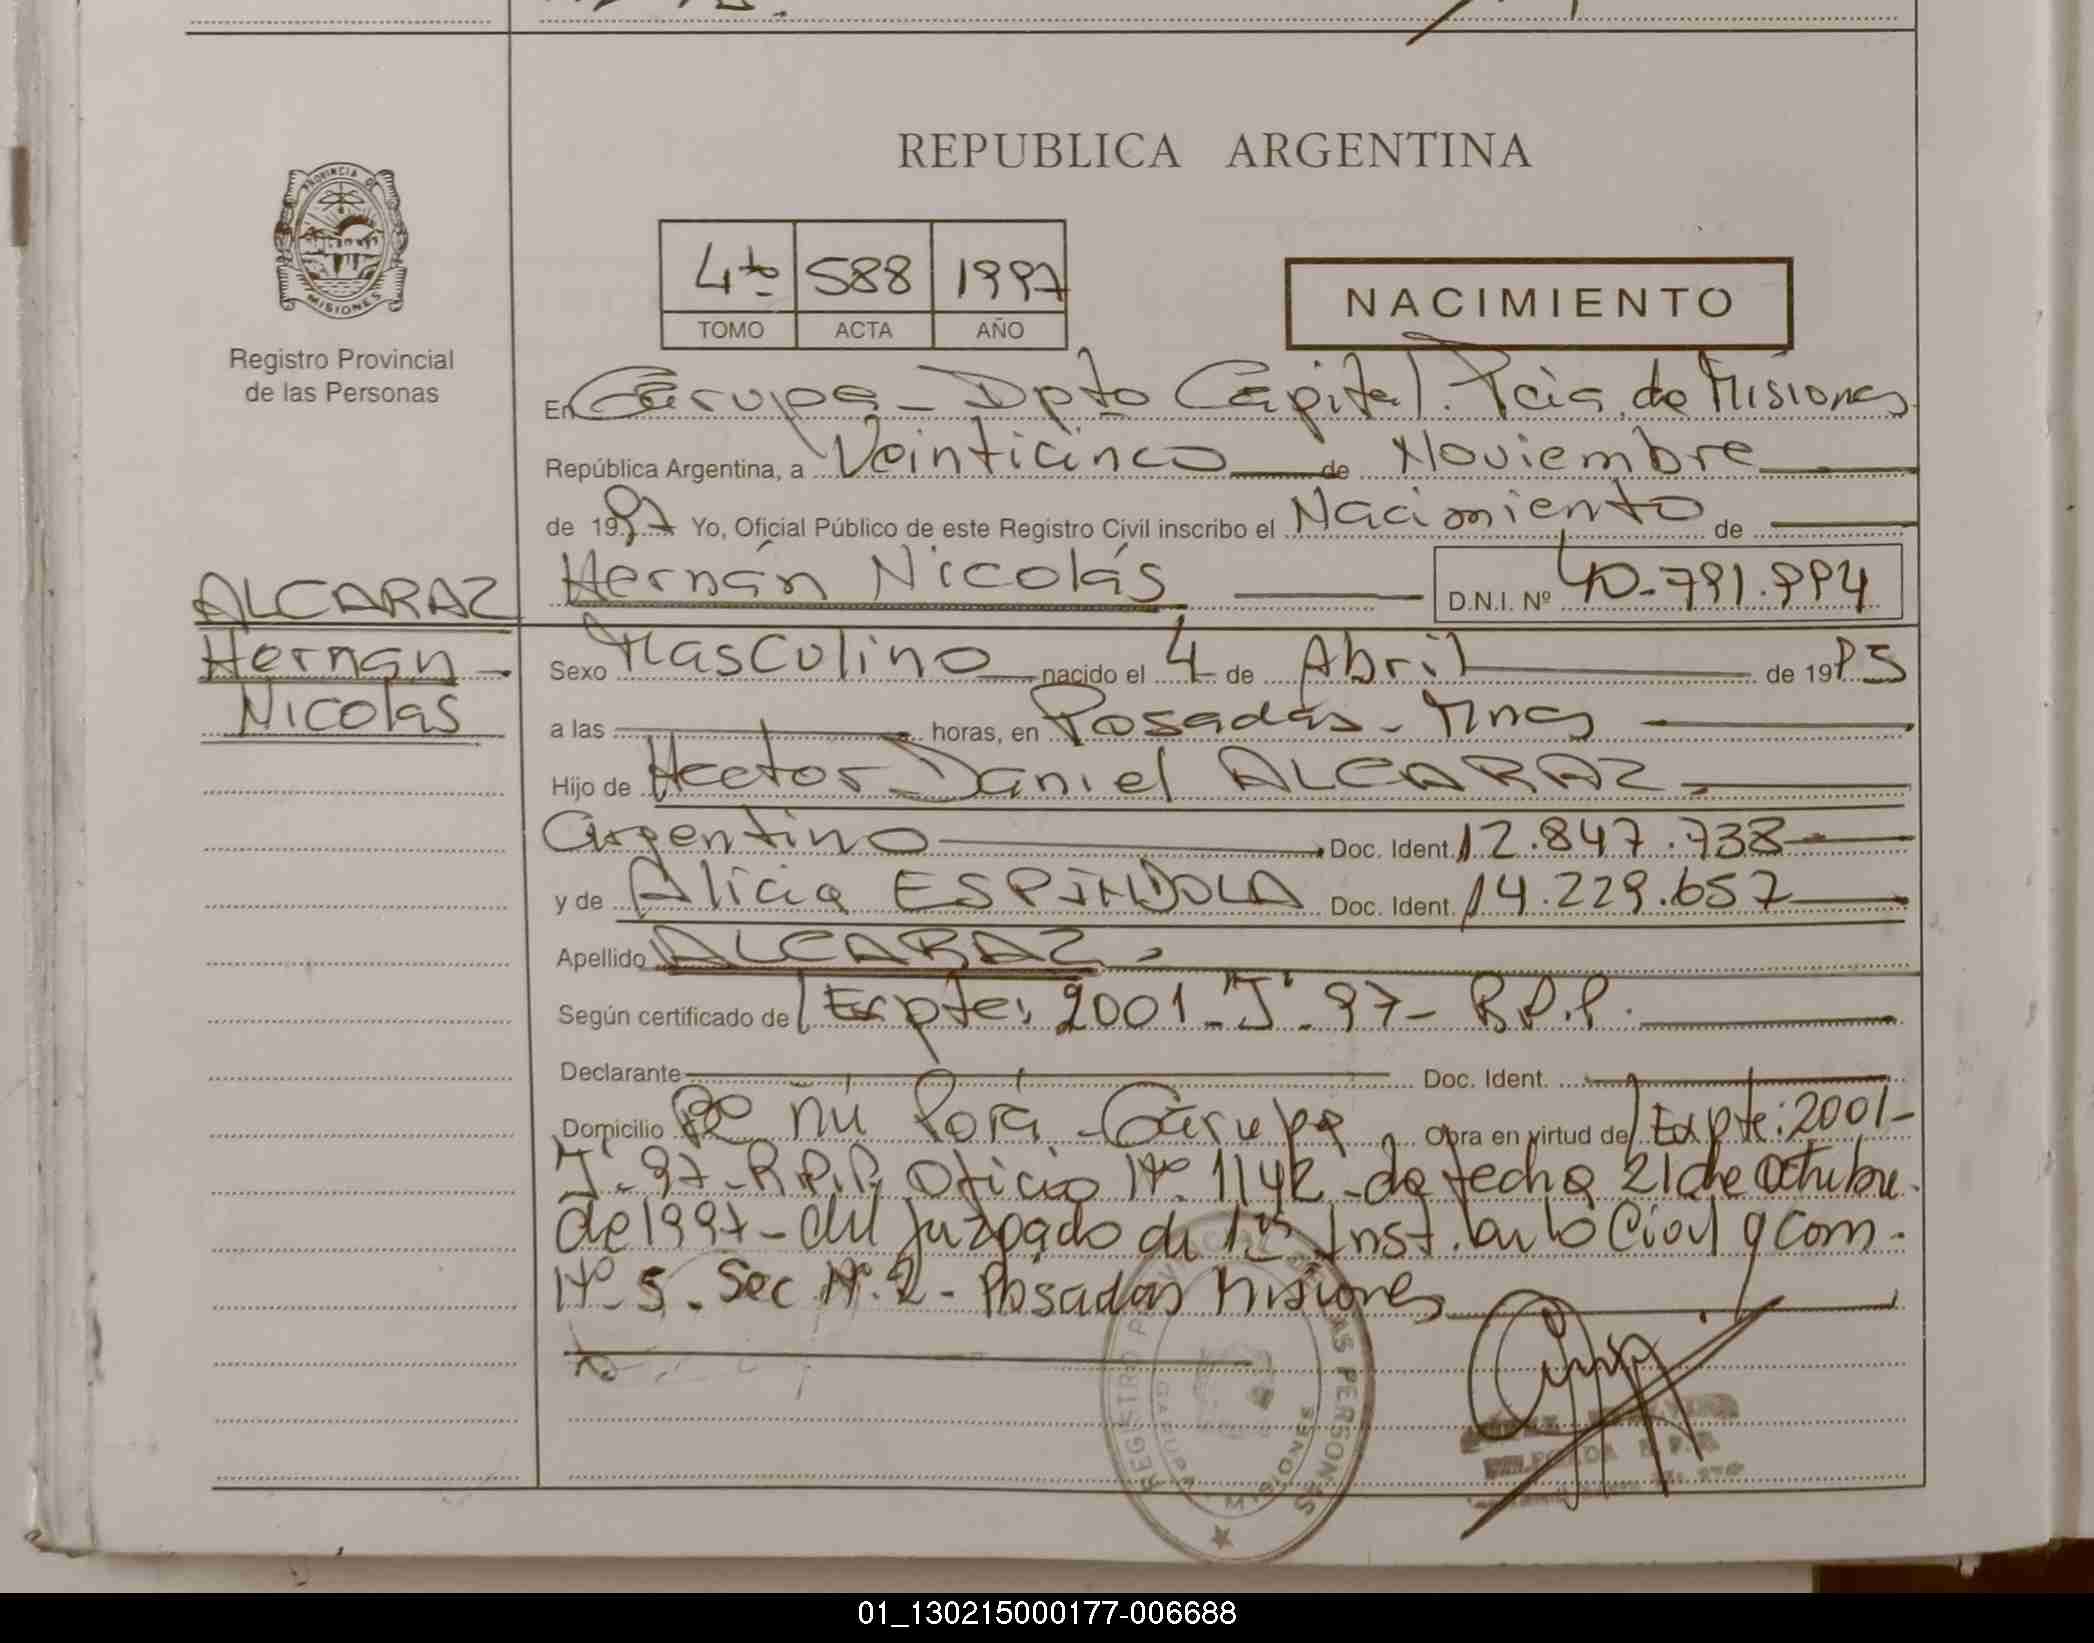 REPUBLICA ARGENTINA
PROVINCIA DE
MISIONES
Registro Provincial
de las Personas
4to 588 1997
TOMO ACTA AÑO
NACIMIENTO
En Garupa - Dpto Capital. Pcia. de Misiones
República Argentina, a Veinticinco de Noviembre
de 1997 Yo, Oficial Público de este Registro Civil inscribo el Nacimiento de
Hernán Nicolás D.N.I. Nº 40.791.994
ALCARAZ
Hernan
Nicolas
Sexo Masculino nacido el 4 de Abril de 19
a las horas, en Posadas - Mnes
Hijo de Hector Daniel ALCARAZ
argentino Doc. Ident. 12.847.738
y de Alicia ESPINDOLA Doc. Ident. 14.229.657
Apellido ALCARAZ.
Según certificado de Expte: 2001 - "J" - 97 - R.P.P.
Declarante Doc. Ident.
Domicilio Bº Ñu Porá - Garupa Obra en virtud de Expte: 2001-
"J" - 97 - R.P.P. Oficio Nº 1142 - de fecha 21 de Octubre
de 1997 - del Juzgado de 1ra Inst. en lo Civil y Com.
Nº 5. Sec Nº. 2 - Posadas Misiones
REGISTRO PROVINCIAL DE LAS PERSONAS
GARUPA MISIONES
01_130215000177-006688